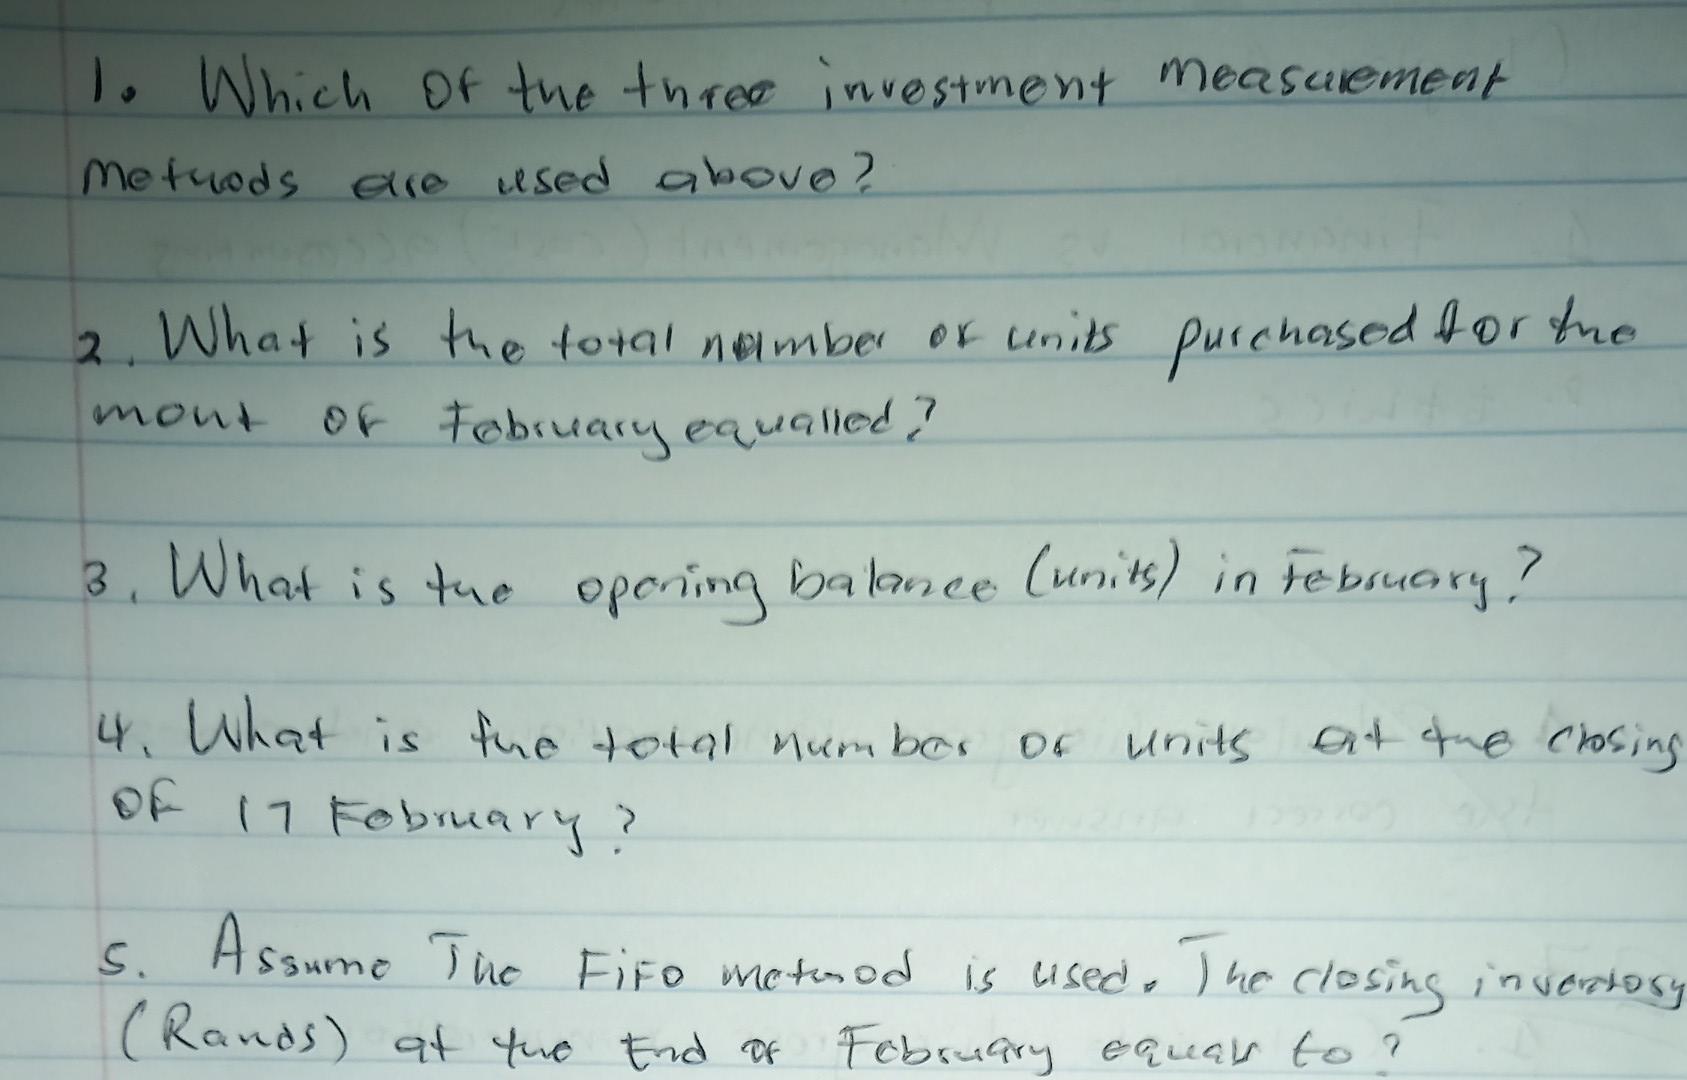 1. Which of the three investment measurement
methods are used above?
2. What is the total number of units purchased for the
mont of February equalled?
3. What is the opening balance (units) in February?
4. What is the total number of units at the closing
of 17 February?
5. Assume The FiFO method is used. The closing inventory
(Rands) at the End of February equals to?